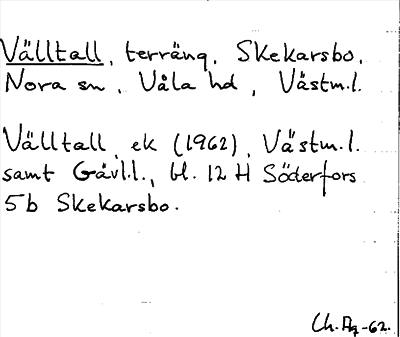 Välltall, terräng, Skekarsbo,
Nora sn, Våla hd, Västm.l.
Välltall, ek (1962), Västm.l.
samt Gävl.l., bl. 12 H Söderfors
5b Skekarsbo.
Ch. Ag -62.